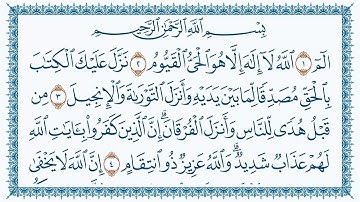 بِسْمِ اللَّهِ الرَّحْمَٰنِ الرَّحِيمِ
الٓمٓ ١ ٱللَّهُ لَآ إِلَٰهَ إِلَّا هُوَ ٱلْحَىُّ ٱلْقَيُّومُ ٢ نَزَّلَ عَلَيْكَ ٱلْكِتَٰبَ
بِٱلْحَقِّ مُصَدِّقًا لِّمَا بَيْنَ يَدَيْهِ وَأَنزَلَ ٱلتَّوْرَىٰةَ وَٱلْإِنجِيلَ ٣ مِن
قَبْلُ هُدًى لِّلنَّاسِ وَأَنزَلَ ٱلْفُرْقَانَ ۗ إِنَّ ٱلَّذِينَ كَفَرُوا۟ بِـَٔايَٰتِ ٱللَّهِ
لَهُمْ عَذَابٌ شَدِيدٌ ۗ وَٱللَّهُ عَزِيزٌ ذُو ٱنتِقَامٍ ٤ إِنَّ ٱللَّهَ لَا يَخْفَىٰ